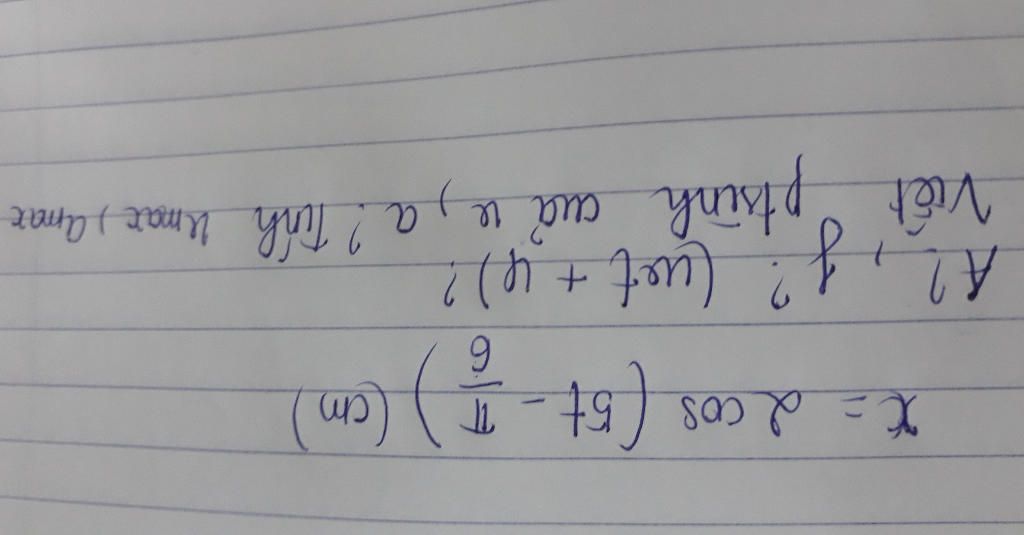 x = 2 cos (5t - π/6) (cm)
A?, f? (wt + φ)?
Viết ptrình của v, a? Tính vmax, amax